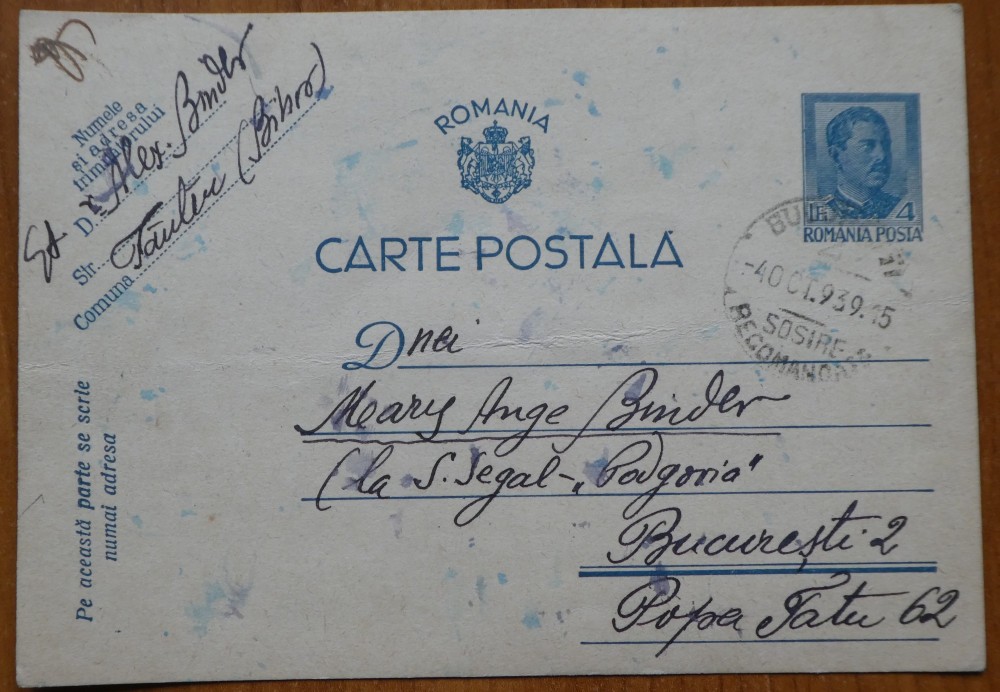 Numele
și adresa
trimițătorului
Dr. Alex. Binder
Str. Tăuteu (Bihor)
Comuna
ROMANIA
CARTE POSTALĂ
LEI 4
ROMANIA POSTA
-4 OCT. 939. 15
SOSIRE
RECOMANDA
Dnei
Mary Ange Binder
(la S. Segal - „Podgoria"
București 2
Popa Tatu 62
Pe această parte se scrie
numai adresa